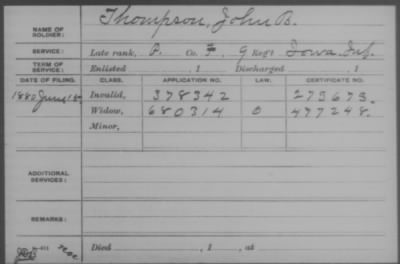 NAME OF SOLDIER: Thompson, John B.
SERVICE: Late rank, P. Co. I, 9 Reg't Iowa Inf.
TERM OF SERVICE: Enlisted , 1 Discharged , 1
DATE OF FILING. CLASS. APPLICATION NO. LAW. CERTIFICATE NO.
1880 June 18 Invalid, 378342 273673.
Widow, 680314 477248.
Minor,
ADDITIONAL SERVICES:
REMARKS:
Died , 1 , at